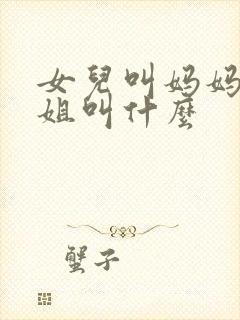 女兒叫妈妈
姐叫什麼
蟹子